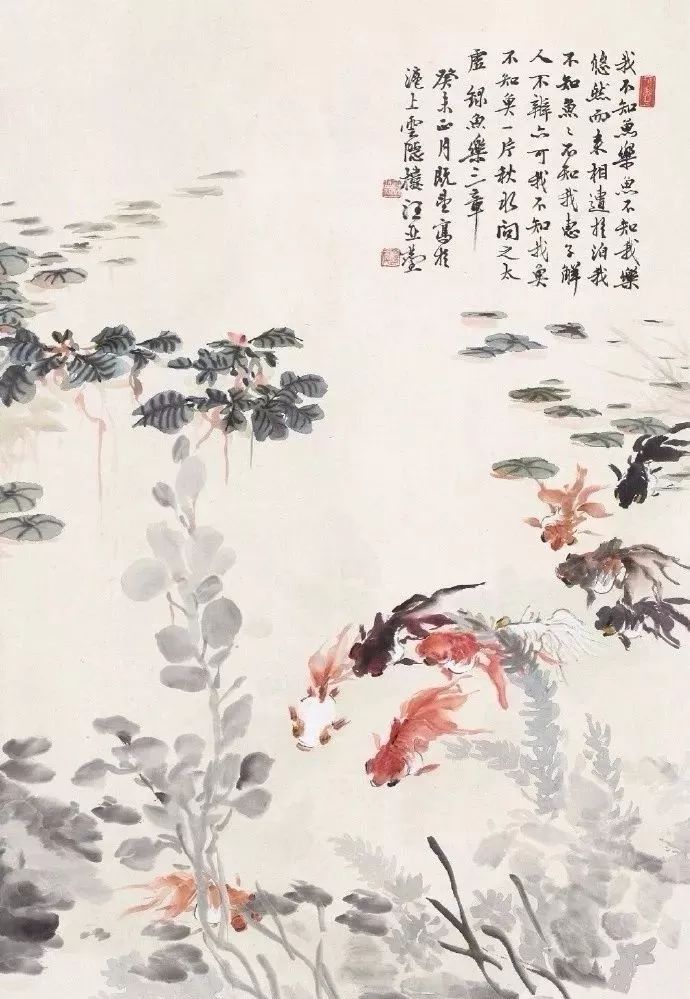 我不知魚樂魚不知我樂
悠然而來相遺於泊我
不知魚〻不知我惠子解
人不辯亦可我不知我魚
不知魚一片秋水問之太
虛 錄魚樂三章
癸未正月既望寫於
滬上雲隱樓汪亞塵